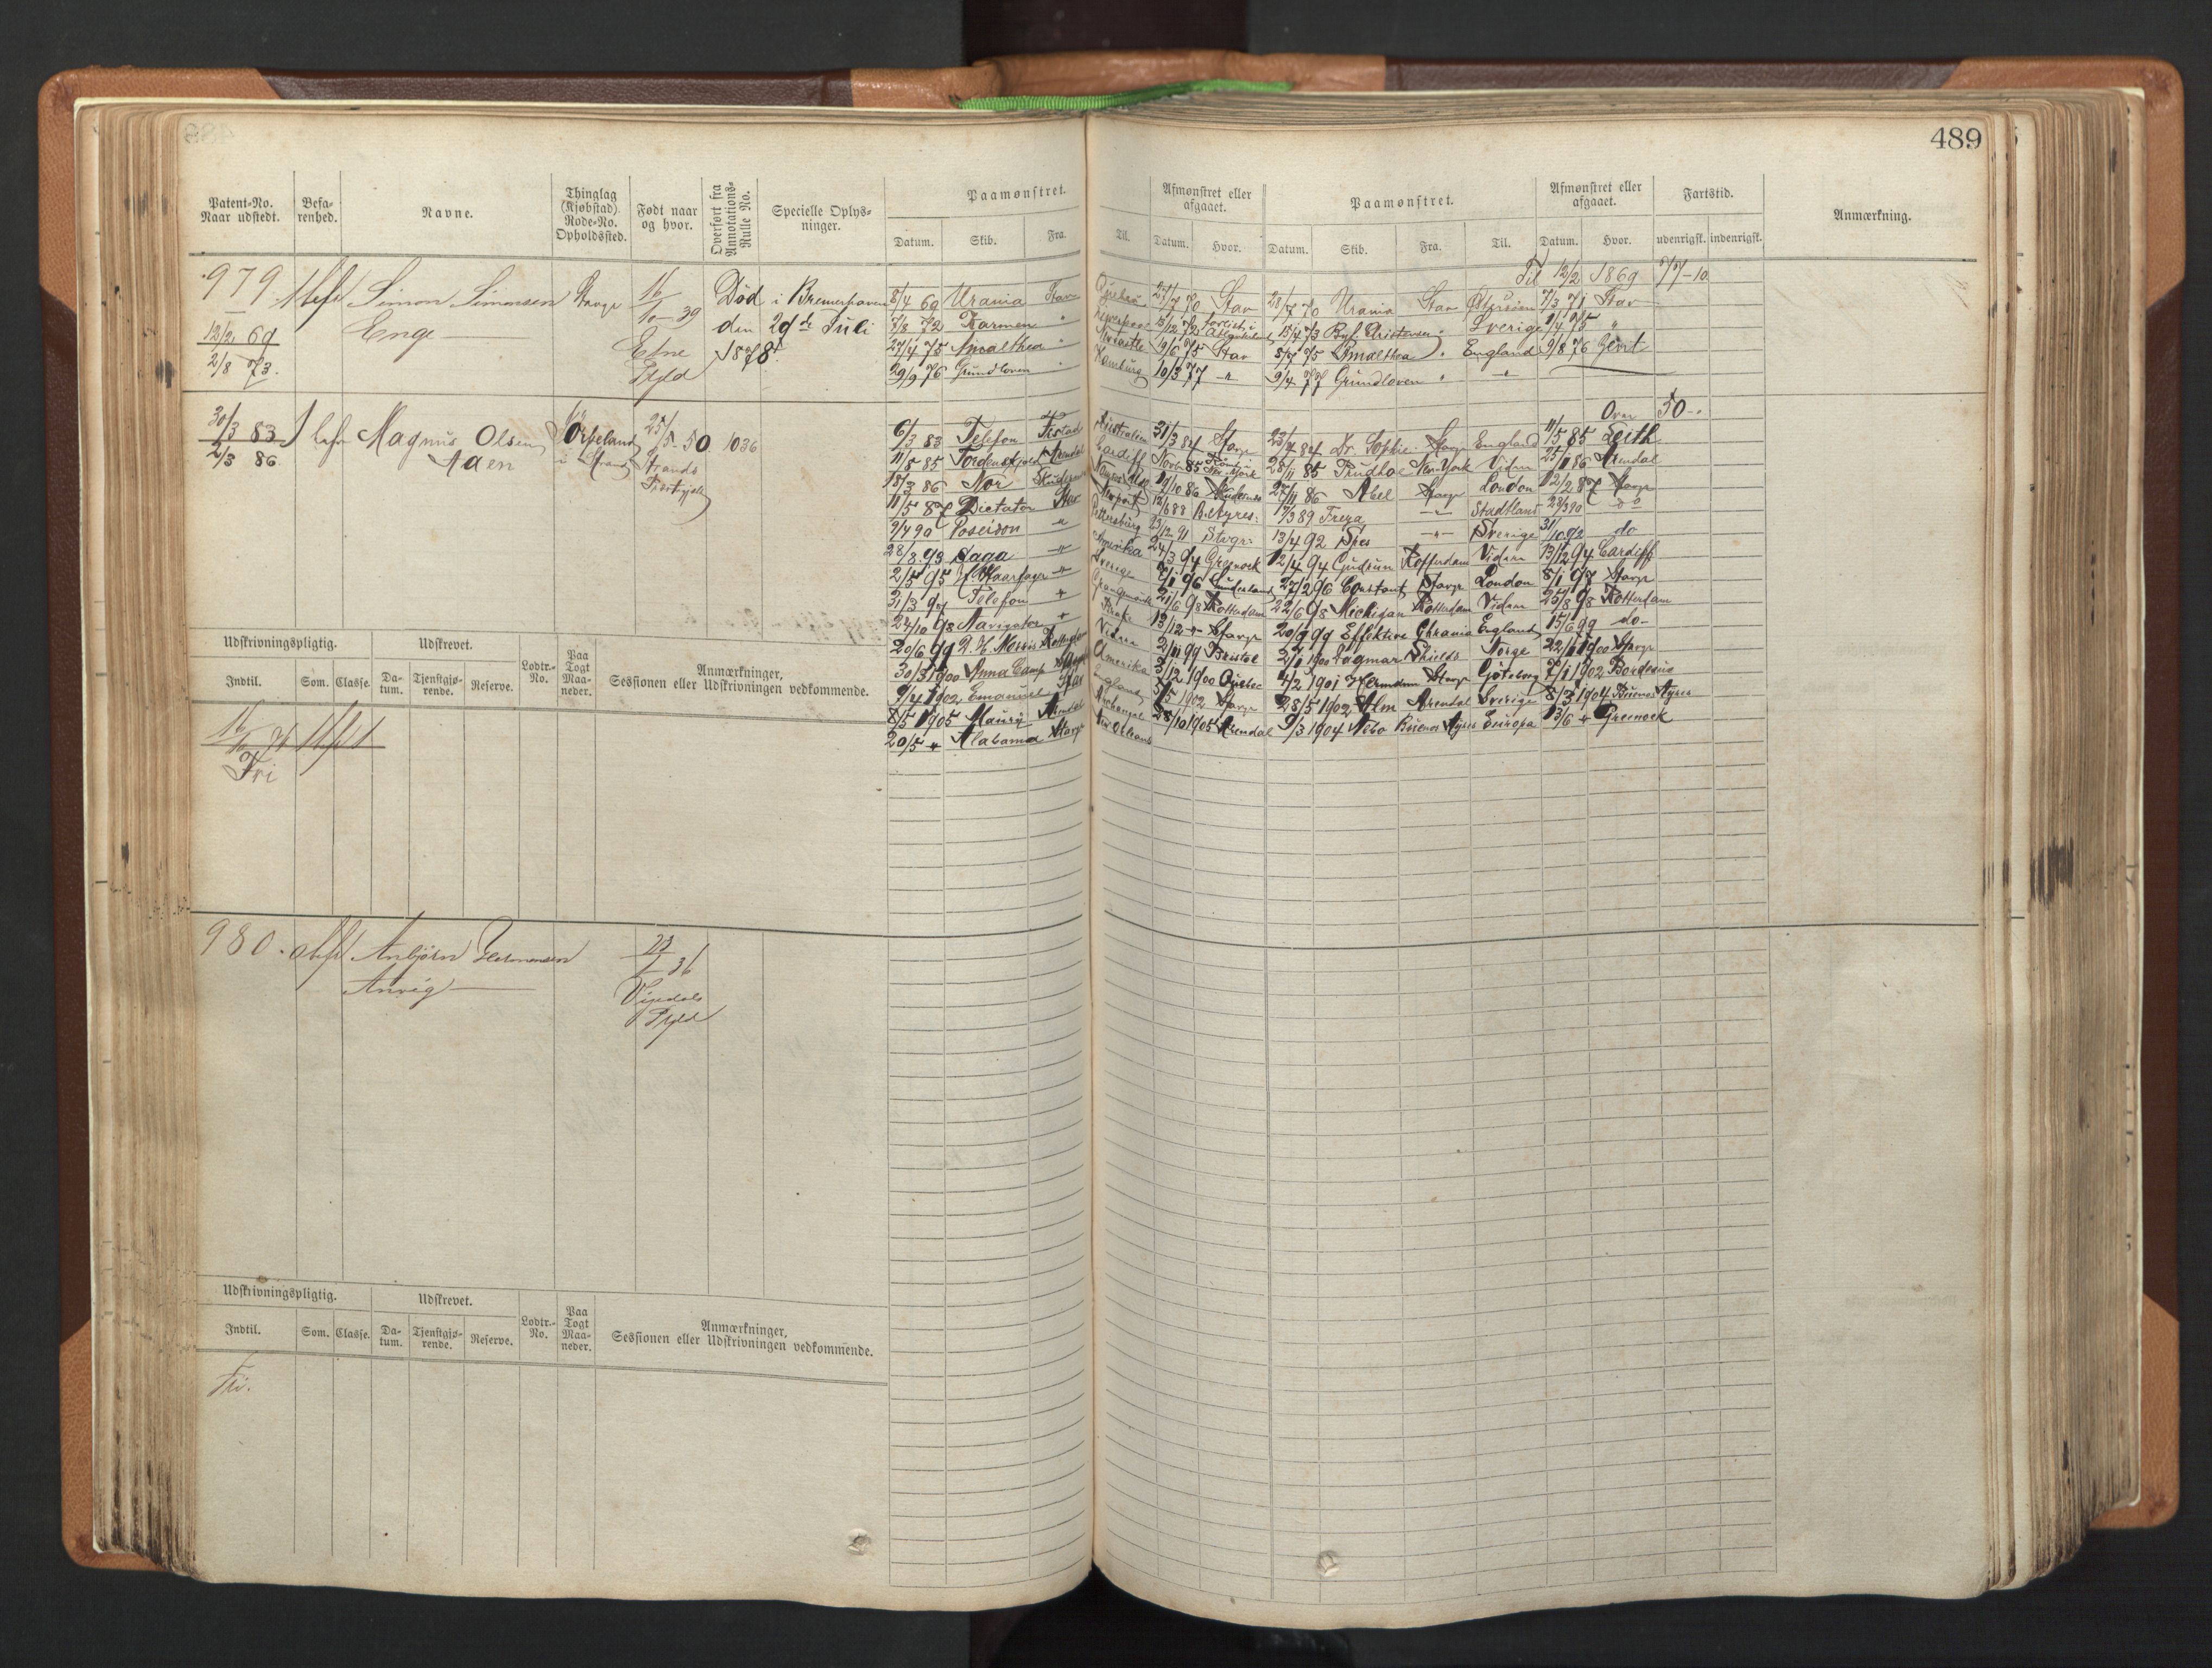 489
Patent-No. Naar udstedt. Befa-renhed. Navne. Thinglag (Kjøbstad). Rode-No. Opholdssted. Født naar og hvor. Overført fra Annotations-Rulle No. Specielle Oplys-ninger. Paamønstret. Afmønstret eller afgaaet. Paamønstret. Afmønstret eller afgaaet. Fartstid. Anmærkning.
Datum. Skib. Fra. Til. Datum. Hvor. Datum. Skib. Fra. Til. Datum. Hvor. udenrigsk. indenrigsk.
Til 12/2 1869 77-10
979. Simon Simonsen Stavgr 16/10 39 Død i Bremerhaven 8/4 69 Urania Stav 27/7 70 Stav 28/7 70 Urania Stav Østersøen 7/3 71 Stav
12/2 69 Enge den 29de Juli 7/8 72 Karmen " 15/12 72 15/4 73 " Sverige 9/4 75 "
2/8 73. Etne 1878. 27/4 75 Amalthea " 19/6 75 Stav 8/7 75 Amalthea " England 9/8 76 Gent
Pgld 29/9 76 Grundloven " Hamburg 10/3 77 " 9/4 77 Grundloven " "
Over 50-
30/3 83 Magnus Olsen Jörpeland 25/5-50 1036 6/3 83 Telefon Australien 31/3 84 Stavgr 23/4 84 Dr. Sophie Stavgr England 11/5 85 Leith
2/3 86 Aaen i Strand Strands 11/8 85 Tordenskjold Arendal Cardiff Novb 85 New York 28/11 85 Trudhoe New York Viden 25/1 86 Arendal
Præstegjeld 18/3 86 Nor 19/10 86 Skudesnes 27/11 86 Abel Stavgr London 12/2 87 Stavgr
11/5 87 Dictator Stav Newport 12/6 88 B. Ayres: 17/3 89 Freya " Stadtland 28/3 90 do
9/4 90 Poseidon " Pettersburg 23/12 91 Stvgr: 13/4 92 Spes " Sverige 31/10 92 do
28/3 93 Saga " Amerika 24/3 94 Greenock 12/4 94 Gudrun Rotterdam Viden 13/12 94 Cardiff
2/5 95 H. Haarfagr " Sverige 7/1 96 Sunderland 27/2 96 Constant Stavgr London 8/1 97 Stavgr
31/3 97 Telefon " Grangemouth 21/6 98 Rotterdam 22/6 98 Michigan Rotterdam Viden 25/8 98 Rotterdam
24/10 98 Navigator " 13/12 " Stavgr 20/3 99 Effektive Chrania England 15/6 99 do-
20/6 99 Viden 2/11 99 Bristol 2/1 1900 Dagmar Shields Norge 22/1 1900 Stavgr
30/3 1900 Anna Camp Stavgr Amerika 3/12 1900 Quebec 4/2 1901 Stavgr Göteborg 7/1 1902 Bordeaux
9/4 1902 Emanuel Stav England 5/5 1902 Stavgr 28/5 1902 Alm Arendal Sverige 8/3 1904 Buenos Ayres
8/5 1905 Maury Arendal Archangel 28/10 1905 Arendal 9/3 1904 Nebo Buenos Ayres Europa 13/6 " Greenock
20/5 " Alabama Stavgr New Orleans
Udskrivningspligtig. Udskrevet. Lodtr.-No. Paa Togt Maa-neder. Anmærkninger, Sessionen eller Udskrivningen vedkommende.
Indtil. Som. Classe. Da-tum. Tjenstgjø-rende. Reserve.
Fri
980. Anbjörn Hermansen 23/1 36
Anvig Vigedals
Pgld
Udskrivningspligtig. Udskrevet. Lodtr.-No. Paa Togt Maa-neder. Anmærkninger, Sessionen eller Udskrivningen vedkommende.
Indtil. Som. Classe. Da-tum. Tjenstgjø-rende. Reserve.
Fri.